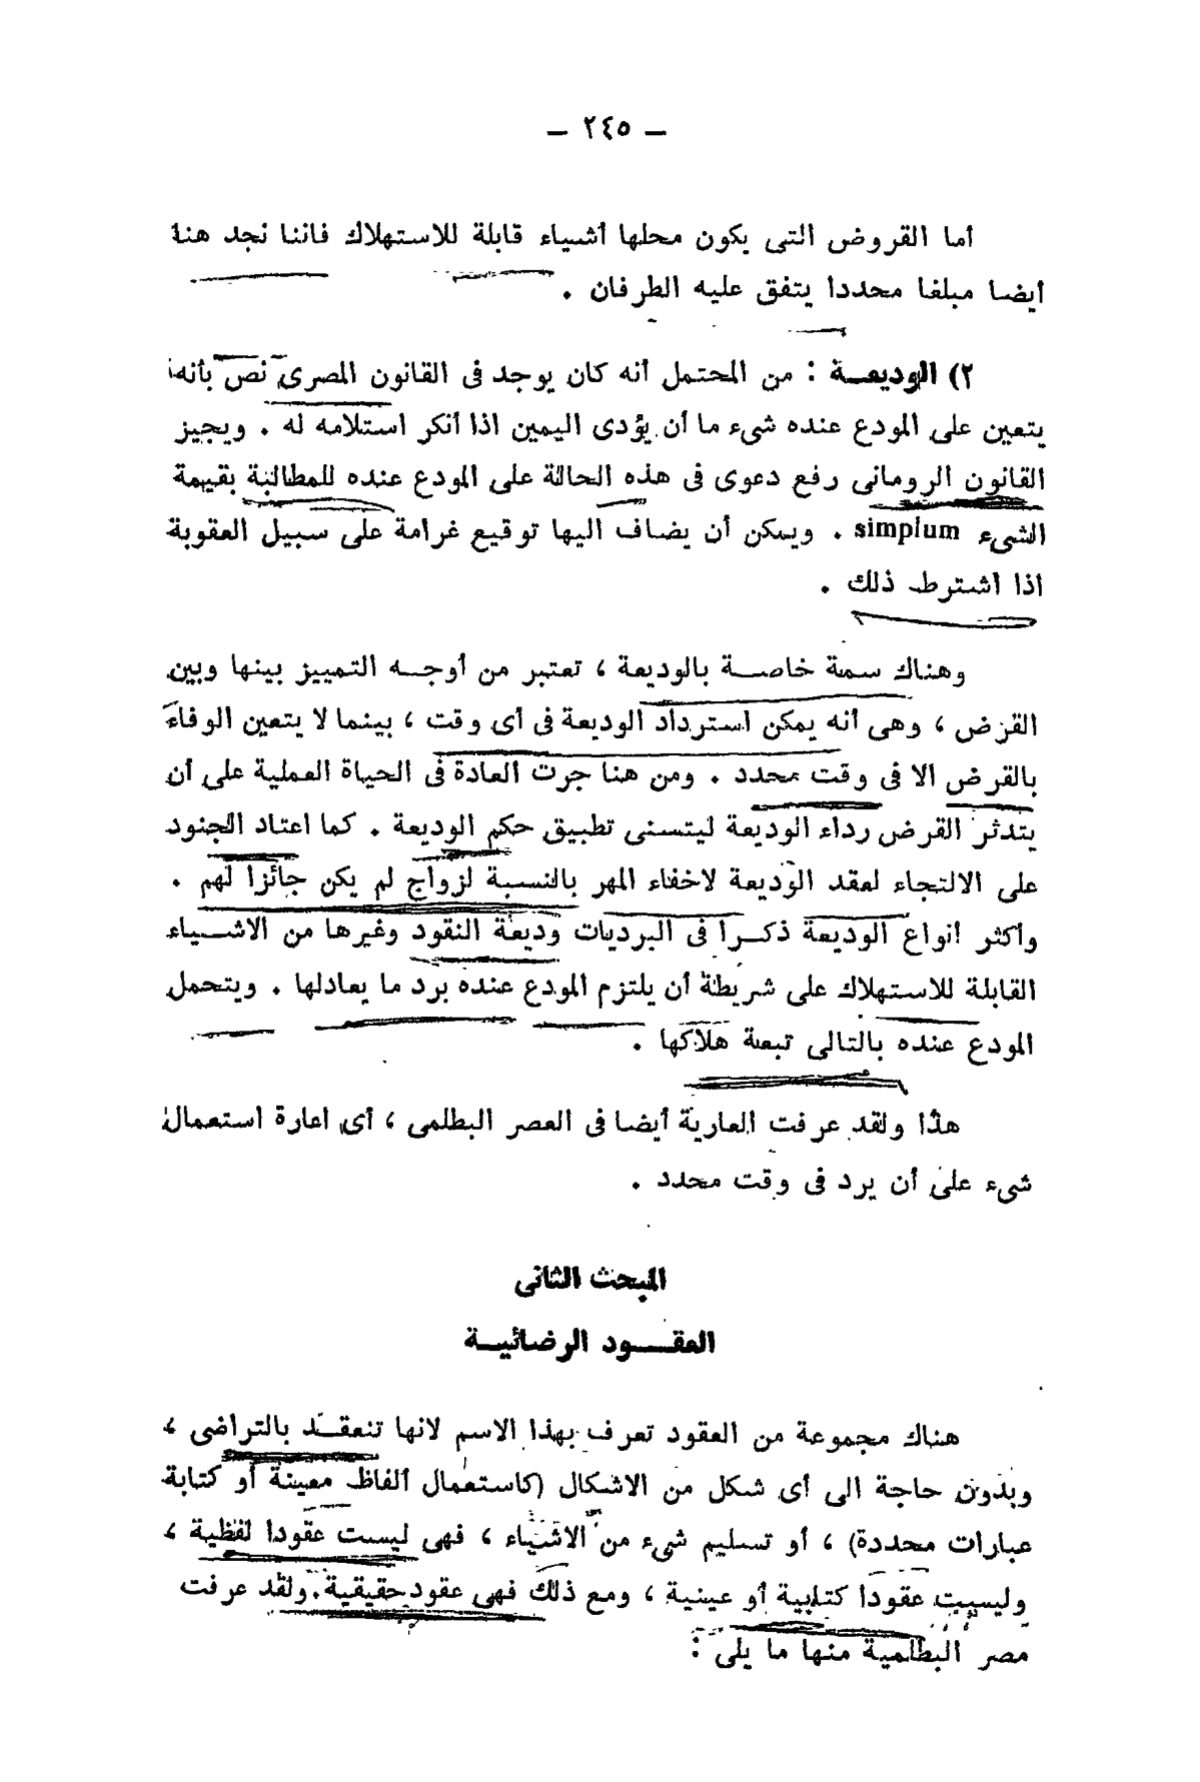 — ٢٤٥ —
أما القروض التى يكون محلها أشياء قابلة للاستهلاك فاننا نجد هنا
أيضا مبلغا محددا يتفق عليه الطرفان .
٢) الوديعـة : من المحتمل أنه كان يوجد فى القانون المصرى نص بأنه
يتعين على المودع عنده شىء ما أن يؤدى اليمين اذا أنكر استلامه له . ويجيز
القانون الرومانى رفع دعوى فى هذه الحالة على المودع عنده للمطالبة بقيمة
الشىء simplum . ويمكن أن يضاف اليها توقيع غرامة على سبيل العقوبة
اذا اشترط ذلك .
وهناك سمة خاصـة بالوديعة ، تعتبر من أوجـه التمييز بينها وبين
القرض ، وهى أنه يمكن استرداد الوديعة فى أى وقت ، بينما لا يتعين الوفاء
بالقرض الا فى وقت محدد . ومن هنا جرت العادة فى الحياة العملية على أن
يتدثر القرض رداء الوديعة ليتسنى تطبيق حكم الوديعة . كما اعتاد الجنود
على الالتجاء لعقد الوديعة لاخفاء المهر بالنسبة لزواج لم يكن جائزا لهم .
وأكثر أنواع الوديعة ذكـرا فى البرديات وديعة النقود وغيرها من الاشـياء
القابلة للاستهلاك على شريطة أن يلتزم المودع عنده برد ما يعادلها . ويتحمل
المودع عنده بالتالى تبعة هلاكها .
هذا ولقد عرفت العارية أيضا فى العصر البطلمى ، أى اعارة استعمال
شىء على أن يرد فى وقت محدد .
المبحث الثانى
العقـــود الرضائيـة
هناك مجموعة من العقود تعرف بهذا الاسم لانها تنعقـد بالتراضى ،
وبدون حاجة الى أى شكل من الاشكال (كاستعمال ألفاظ معينة أو كتابة
عبارات محددة) ، أو تسليم شىء من الاشياء ، فهى ليست عقودا لفظية ،
وليست عقودا كتابية أو عينية ، ومع ذلك فهى عقود حقيقية . ولقد عرفت
مصر البطلمية منها ما يلى :